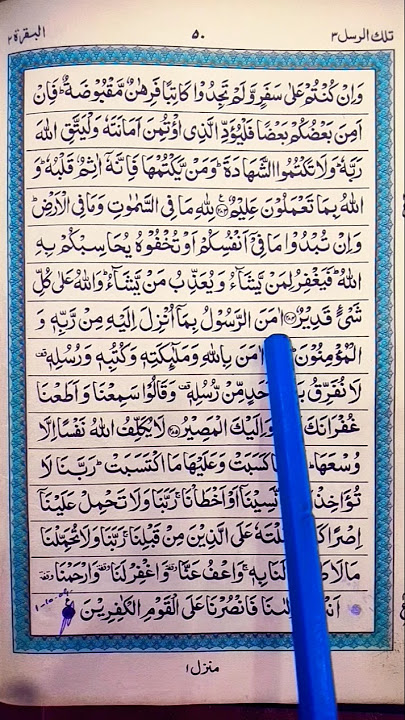 تلك الرسل ٣ ٥٠ البقرة ٢
وَاِنْ كُنْتُمْ عَلٰى سَفَرٍ وَّلَمْ تَجِدُوْا كَاتِبًا فَرِهٰنٌ مَّقْبُوْضَةٌ ؕ فَاِنْ
اَمِنَ بَعْضُكُمْ بَعْضًا فَلْيُؤَدِّ الَّذِى اؤْتُمِنَ اَمَانَتَهٗ وَلْيَتَّقِ اللّٰهَ
رَبَّهٗ ؕ وَلَا تَكْتُمُوا الشَّهَادَةَ ؕ وَمَنْ يَّكْتُمْهَا فَاِنَّهٗۤ اٰثِمٌ قَلْبُهٗ ؕ وَ
اللّٰهُ بِمَا تَعْمَلُوْنَ عَلِيْمٌ لِلّٰهِ مَا فِى السَّمٰوٰتِ وَمَا فِى الْاَرْضِ ؕ
وَاِنْ تُبْدُوْا مَا فِىْۤ اَنْفُسِكُمْ اَوْ تُخْفُوْهُ يُحَاسِبْكُمْ بِهِ
اللّٰهُ ؕ فَيَغْفِرُ لِمَنْ يَّشَآءُ وَيُعَذِّبُ مَنْ يَّشَآءُ ؕ وَاللّٰهُ عَلٰى كُلِّ
شَىْءٍ قَدِيْرٌ اٰمَنَ الرَّسُوْلُ بِمَاۤ اُنْزِلَ اِلَيْهِ مِنْ رَّبِّهٖ وَ
الْمُؤْمِنُوْنَ اٰمَنَ بِاللّٰهِ وَمَلٰٓئِكَتِهٖ وَكُتُبِهٖ وَرُسُلِهٖ
لَا نُفَرِّقُ اَحَدٍ مِّنْ رُّسُلِهٖ وَقَالُوْا سَمِعْنَا وَاَطَعْنَا
غُفْرَانَكَ وَاِلَيْكَ الْمَصِيْرُ لَا يُكَلِّفُ اللّٰهُ نَفْسًا اِلَّا
وُسْعَهَا كَسَبَتْ وَعَلَيْهَا مَا اكْتَسَبَتْ ؕ رَبَّنَا لَا
تُؤَاخِذْنَاۤ نَّسِيْنَاۤ اَوْ اَخْطَاْنَا ۚ رَبَّنَا وَلَا تَحْمِلْ عَلَيْنَاۤ
اِصْرًا حَمَلْتَهٗ عَلَى الَّذِيْنَ مِنْ قَبْلِنَا ۚ رَبَّنَا وَلَا تُحَمِّلْنَا
مَا لَا لَنَا بِهٖ ۚ وَاعْفُ عَنَّا وَاغْفِرْ لَنَا وَارْحَمْنَا
اَنْتَ مَوْلٰىنَا فَانْصُرْنَا عَلَى الْقَوْمِ الْكٰفِرِيْنَ
منزل ١